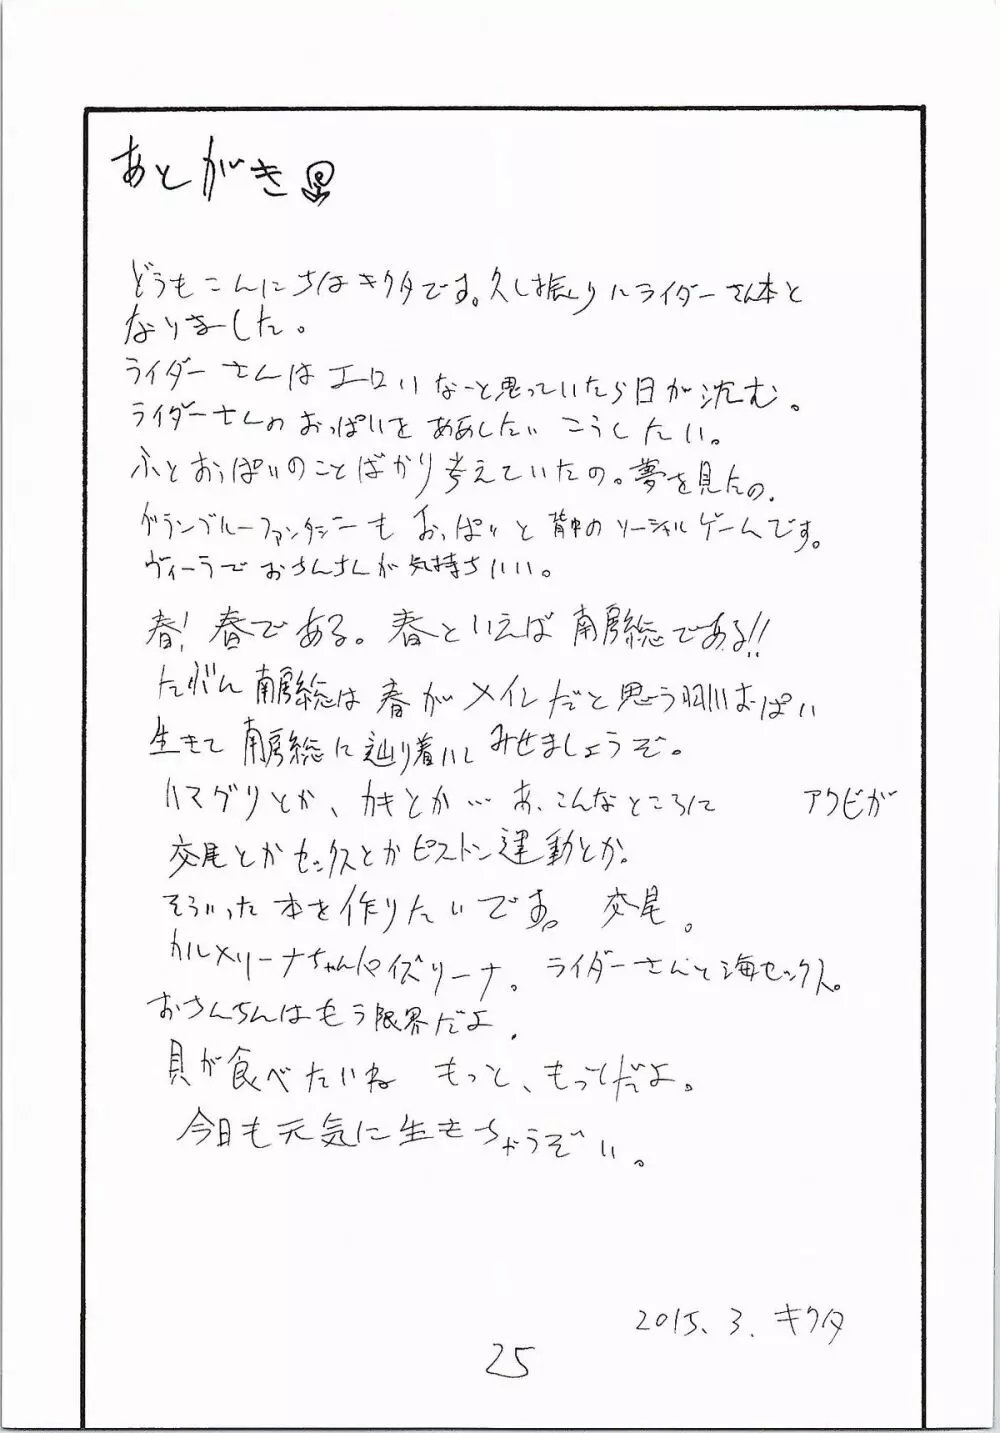 あとがき
どうもこんにちはキクタです。久し振りにライダーさん本と
なりました。
ライダーさんはエロいなーと思っていたら日が沈む。
ライダーさんのおっぱいをああしたいこうしたい。
ふとおっぱいのことばかり考えていたの。夢を見たの.
グランブルーファンタジーもおっぱいと背中のソーシャルゲームです。
ヴィーラでおちんちんが気持ちいい。
春! 春である。春といえば南房総である!!
たぶん南房総は春がメインだと思う おっぱい
生きて南房総に辿り着いてみせましょうぞ。
ハマグリとか、カキとか… あ、こんなところに アワビが
交尾とかセックスとかピストン運動とか。
そういった本を作りたいです。 交尾。
カルメリーナちゃん イズリーナ。 ライダーさんと海セックス。
おちんちんはもう限界だよ.
貝が食べたいね もっと、もっとだよ。
今日も元気に生きちゃうぞい。
2015.3.キクタ
25